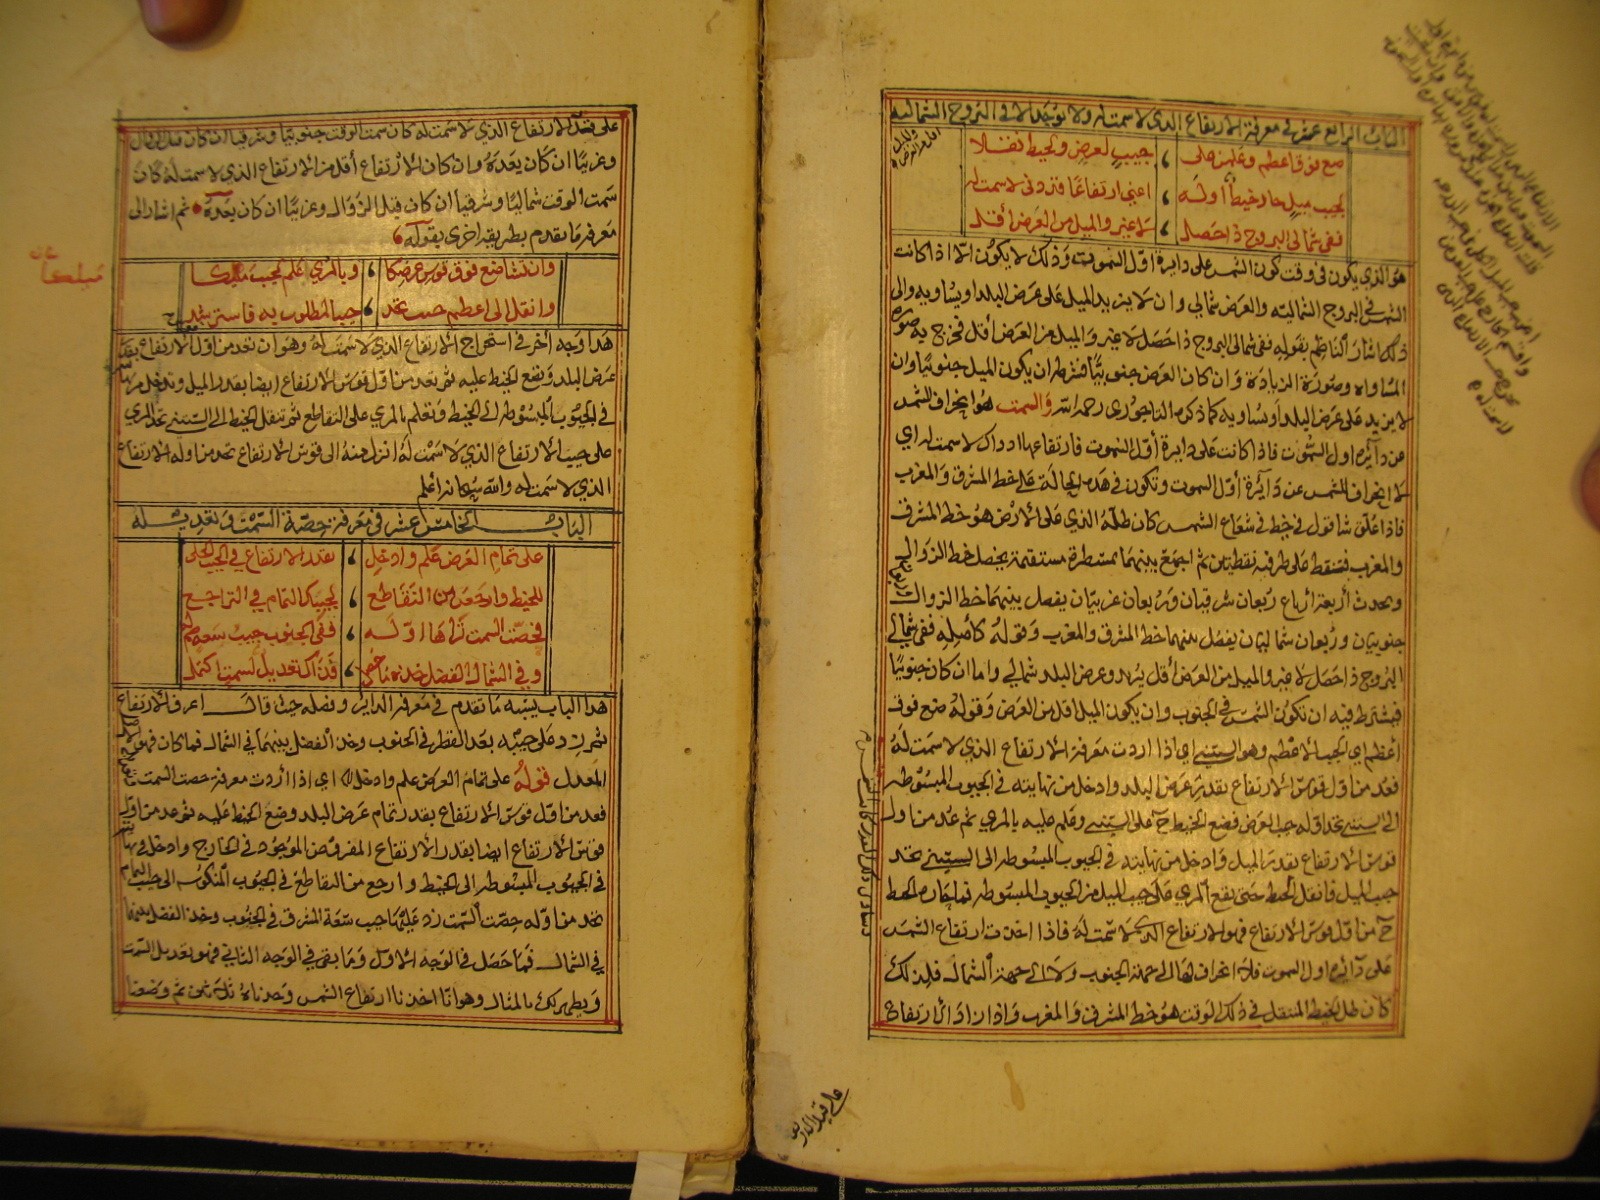 الباب الرابع عشر في معرفة الارتفاع الذي لا سمت له ولا يوجد الا في البروج الشمالية
ضع فوق اعظم وعلمن على جيب لعرض ولخيط نقلا
لجيب ميل حاد خيطا اوله اعني ارتفاعا قد دنى لا سمت له
ففي شمالي البروج ذا حصل لا غير والميل من العرض اقل
هو الذي يكون في وقت كون الشمس على دايرة اول السموت وذلك لا يكون الا اذا كانت
الشمس في البروج الشمالية والعرض شمالي وان لا يزيد الميل على عرض البلد او يساويه والى
ذلك اشار الناظم بقوله ففي شمالي البروج ذا حصل لا غير والميل من العرض اقل فخرج به صورة
المساواة وصورة الزيادة وان كان العرض جنوبيا فشرطه ان يكون الميل جنوبيا وان
لا يزيد على عرض البلد او يساويه كما ذكره التاجوري رحمه الله والسمت هو انحراف الشمس
عن دايرة اول السموت فاذا كانت على دايرة اول السموت فارتفاعها اذ ذاك لا سمت له اي
لا انحراف للشمس عن دايرة اول السموت وتكون في هذه الحالة على خط المشرق والمغرب
فاذا علق شاقول في خيط في شعاع الشمس كان ظله الذي على الارض هو خط المشرق
والمغرب فتنقط على طرفيه نقطتين ثم اجمع بينهما بمسطرة مستقيمة يحصل خط الزوال
ويحدث أربعة أرباع ربعان شرقيان وربعان غربيان يفصل بينهما خط الزوال وربعان
جنوبيان وربعان شماليان يفصل بينهما خط المشرق والمغرب وقوله كاصله ففي شمالي
البروج ذا حصل لا غير والميل من العرض أقل يريد وعرض البلد شمالي واما ان كان جنوبيا
فيشترط فيه ان تكون الشمس في الجنوب وان يكون الميل اقل من العرض وقوله ضع فوق
أعظم اي الجيب الاعظم وهو الستيني اي اذا اردت معرفة الارتفاع الذي لا سمت له
فعد من اول قوس الارتفاع بقدر عرض البلد وادخل من نهايته في الجيوب المبسوطه
الى الستيني تجد اوله جيب العرض فضع الخيط ح على الستيني وعلم عليه بالمري ثم عد من اول
قوس الارتفاع بقدر الميل وادخل من نهايته في الجيوب المبسوطه الى الستيني تجد
جيب الميل فانقل الخيط حتى يقع المري على جيب الميل من الجيوب المبسوطه فما حاذه الخيط
ح من اول قوس الارتفاع فهو الارتفاع الذي لا سمت له فاذا اخذت ارتفاع الشمس
على دايرة اول السموت فلا انحراف لها الى جهة الجنوب ولا الى جهة الشمال فلذلك
كان ظل الخيط المنتقل في ذلك الوقت هو خط المشرق والمغرب واذا زاد الارتفاع
على قدر الارتفاع الذي لا سمت له كان سمت الوقت جنوبيا وشرقيا ان كان قبل الزوال
وغربيا ان كان بعده وان كان الارتفاع أقل من الارتفاع الذي لا سمت له كان
سمت الوقت شماليا وشرقيا ان كان قبل الزوال وغربيا ان كان بعده ثم اشار الى
معرفة ما تقدم بطريقة اخرى بقوله
وان تشا ضع فوق قوس عرضكا وبالمري علم لجيب ميلكا
وانقل الى اعظم حيث تجد جيبا لمطلوب به فاسترشد
هذا وجه أخر في استخراج الارتفاع الذي لا سمت له وهو ان تعد من اول الارتفاع بقدر
عرض البلد وتضع الخيط عليه ثم تعد من اول قوس الارتفاع ايضا بقدر الميل وتدخل من نهايته
في الجيوب المبسوطه الى الخيط وتعلم بالمري على التقاطع ثم تنقل الخيط الى الستيني تجد المري
على جيب الارتفاع الذي لا سمت له انزل منه الى قوس الارتفاع تجد من اوله الارتفاع
الذي لا سمت له والله سبحانه اعلم
الباب الخامس عشر في معرفة حصة السمت وتعديله
على تمام العرض علم وادخل بقدر الارتفاع في الجيب الجلي
للخيط وارجعن من التقاطع لجيبك التمام في التراجع
فحصة السمت تراها اوله ففي الجنوب جيب سعة
وفي الشمال الفضل خذه فذاك تعديل لسمت اكتمل
هذا الباب يشبه ما تقدم في معرفة الداير وفضله حيث قال اعرف الارتفاع
ثم زد على جيبه بعد القطر في الجنوب وخذ الفضل بينهما في الشمال فما كان فهو الاصل
المعدل قوله على تمام العرض علم وادخل الخ اي اذا أردت معرفة حصة السمت
فعد من اول قوس الارتفاع بقدر تمام عرض البلد وضع الخيط عليه ثم عد من اول
قوس الارتفاع ايضا بقدر الارتفاع المفروض الموجود في الخارج وادخل في نهايته
في الجيوب المبسوطه الى الخيط وارجع من التقاطع في الجيوب المنكوسه الى جيب التمام
تجد من اوله حصة السمت زد عليها جيب سعة المشرق في الجنوب وخذ الفضل بينهما
في الشمال فما حصل في الوجه الاول وما بقي في الوجه الثاني فهو تعديل السمت
ويظهر لك بالمثال وهو انا اخذنا ارتفاع الشمس وجدناه ثلاثين ثم وضعنا